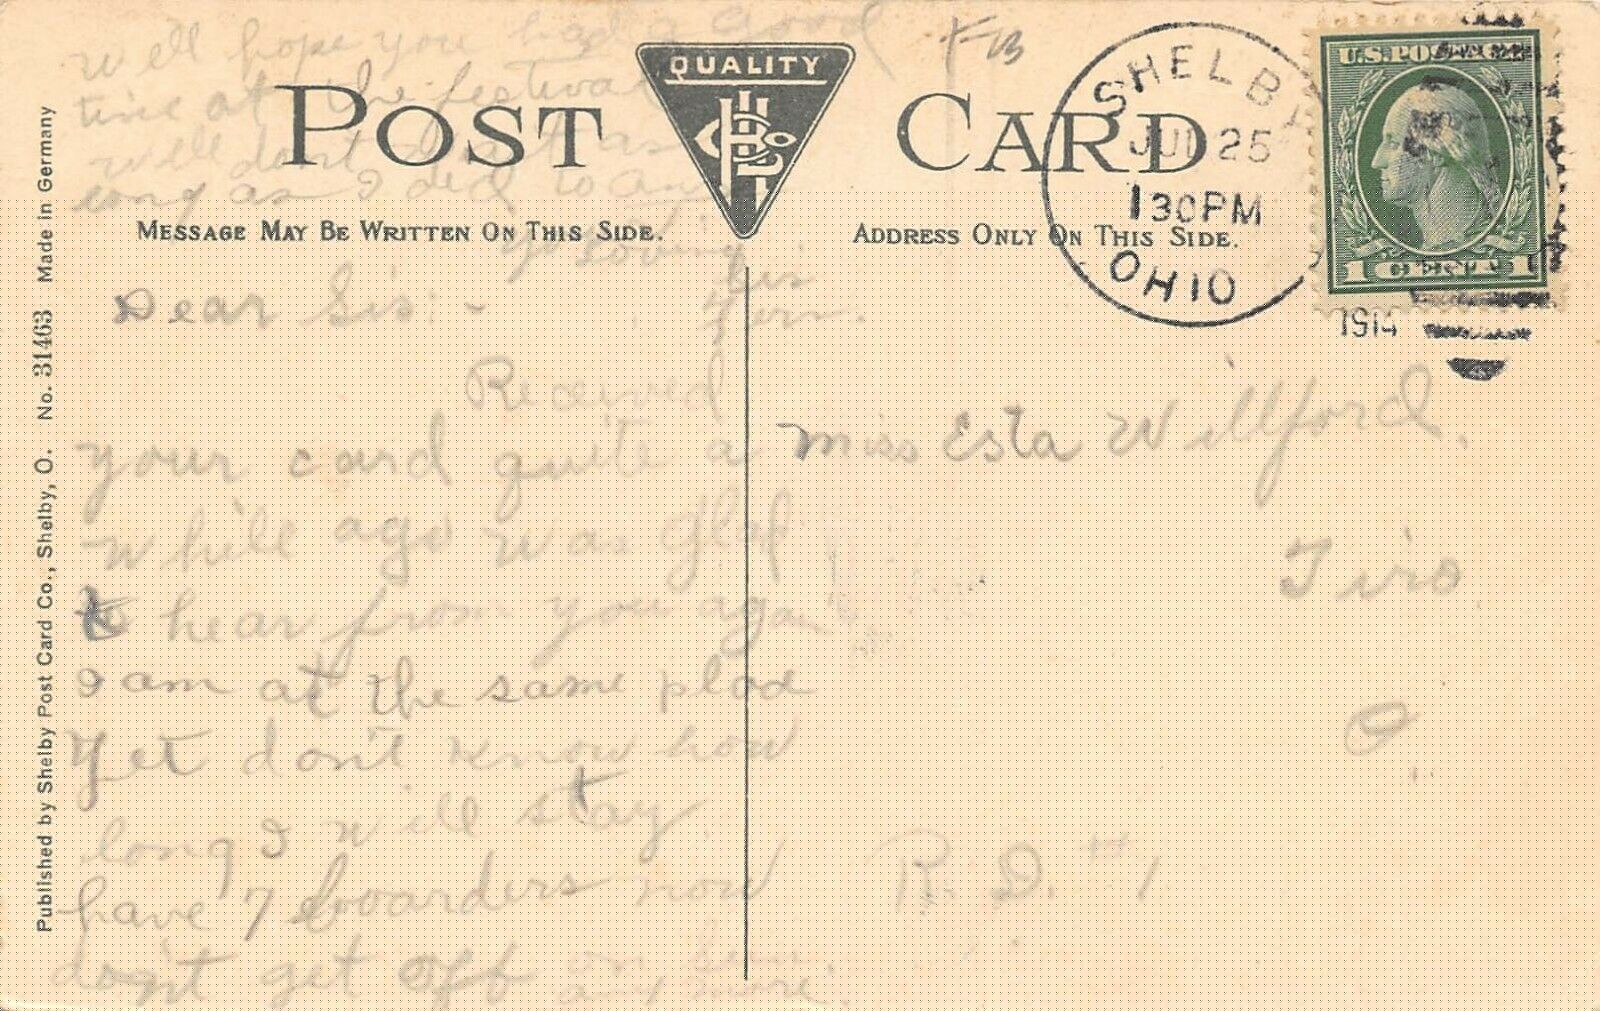 Well hope you had a good
time at the festival
Well don't wait as
long as I did to ans
Your loving
Sis
Fern.
POST CARD
QUALITY
MESSAGE MAY BE WRITTEN ON THIS SIDE.
ADDRESS ONLY ON THIS SIDE.
SHELBY
JUL 25
1 30 PM
OHIO
1914
U.S. POSTAGE
1 CENT 1
Dear Sis: -
Received
your card quite a
while ago was glad
to hear from you again
I am at the same place
Yet don't know how
long I will stay
have 7 boarders now
don't get off on Sun.
any more.
Miss Esta Willford.
Tiro
O.
R. D. #1
Published by Shelby Post Card Co., Shelby, O. No. 31463 Made in Germany